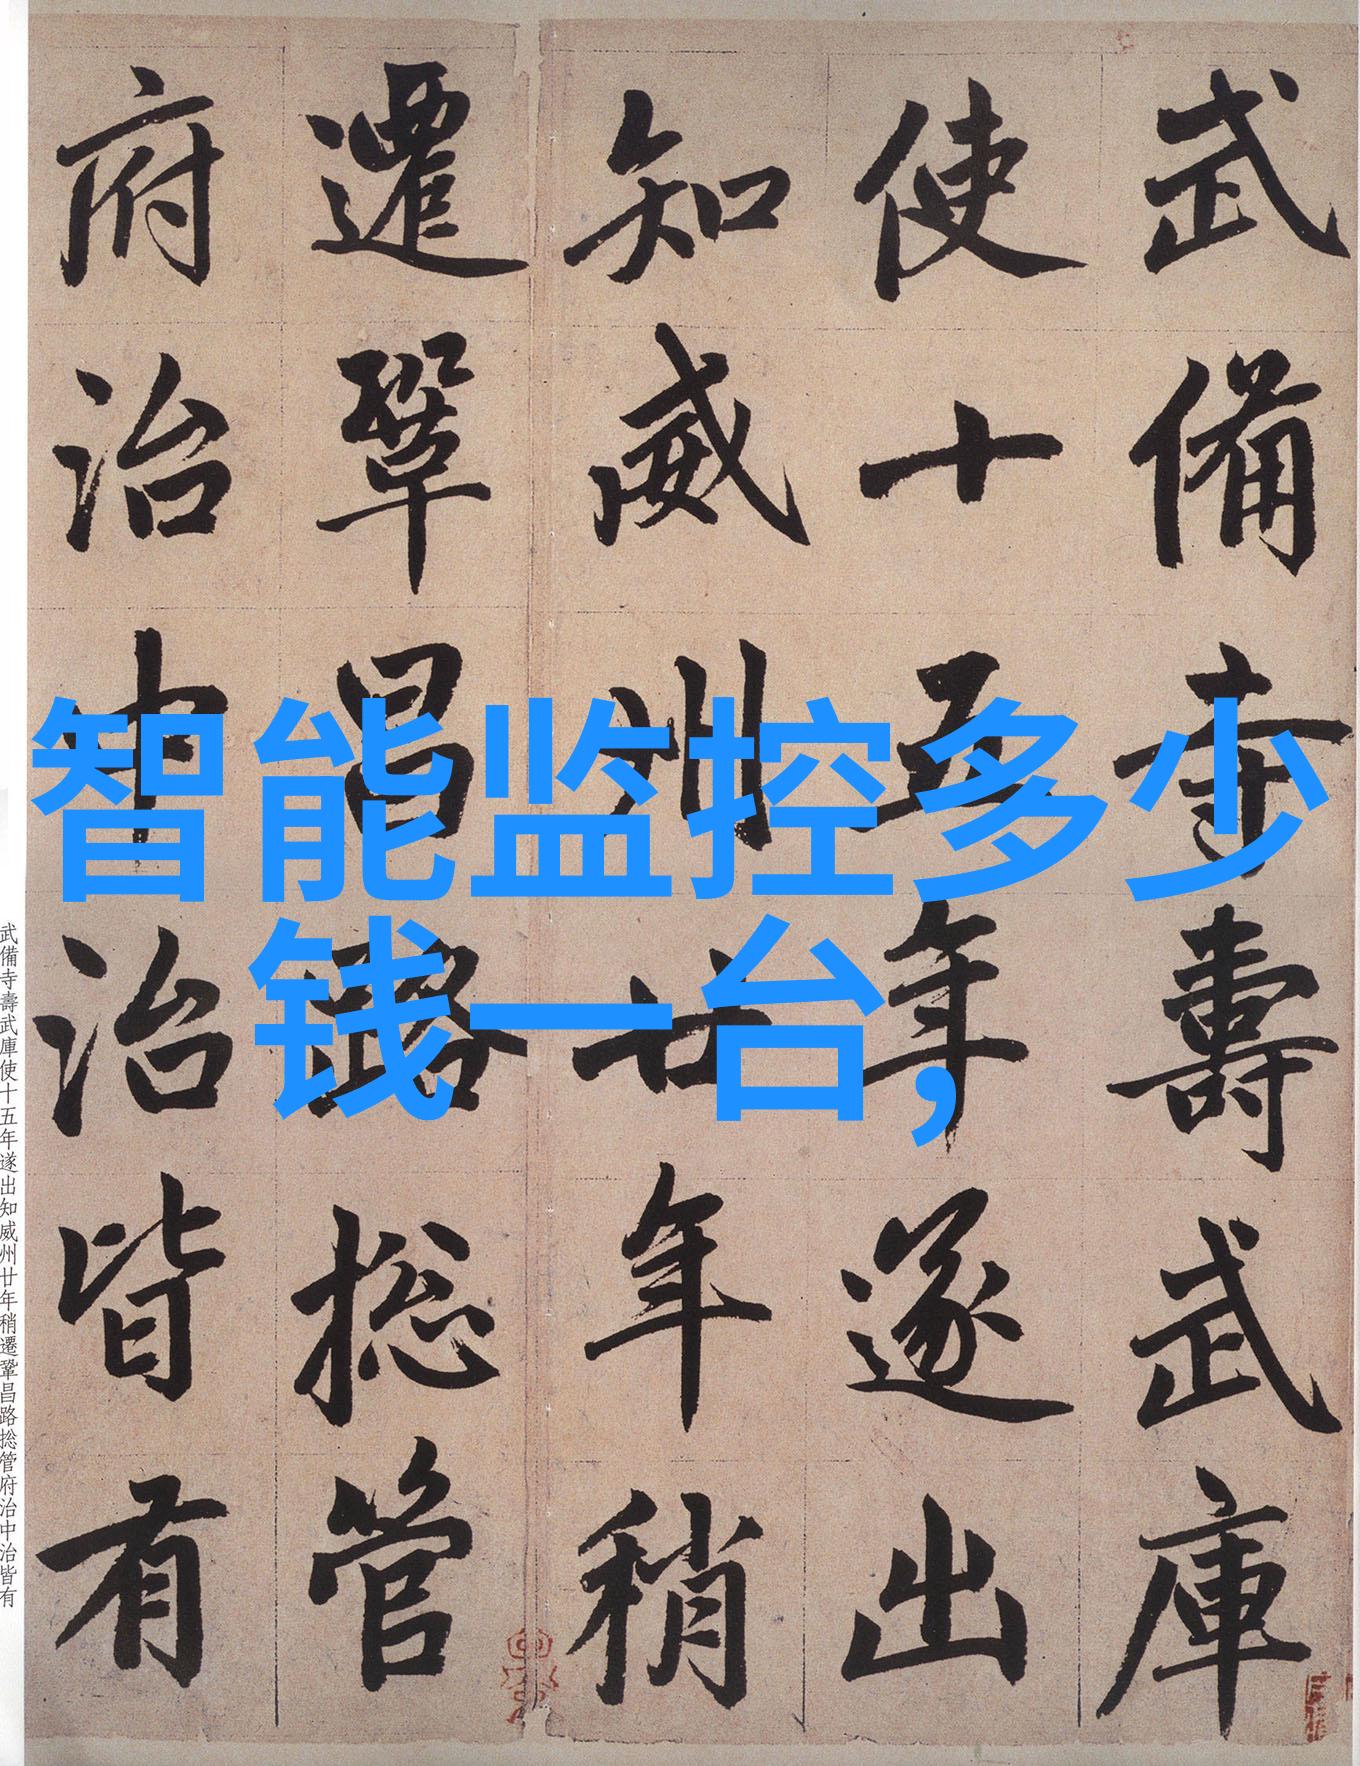 武備寺壽武庫
使十五年遂出
知威州廿年稍
遷鞏昌路捴管
府治中治皆有
智能监控多少
钱一台,
武備寺壽武庫使十五年遂出知威州廿年稍遷鞏昌路捴管府治中治皆有